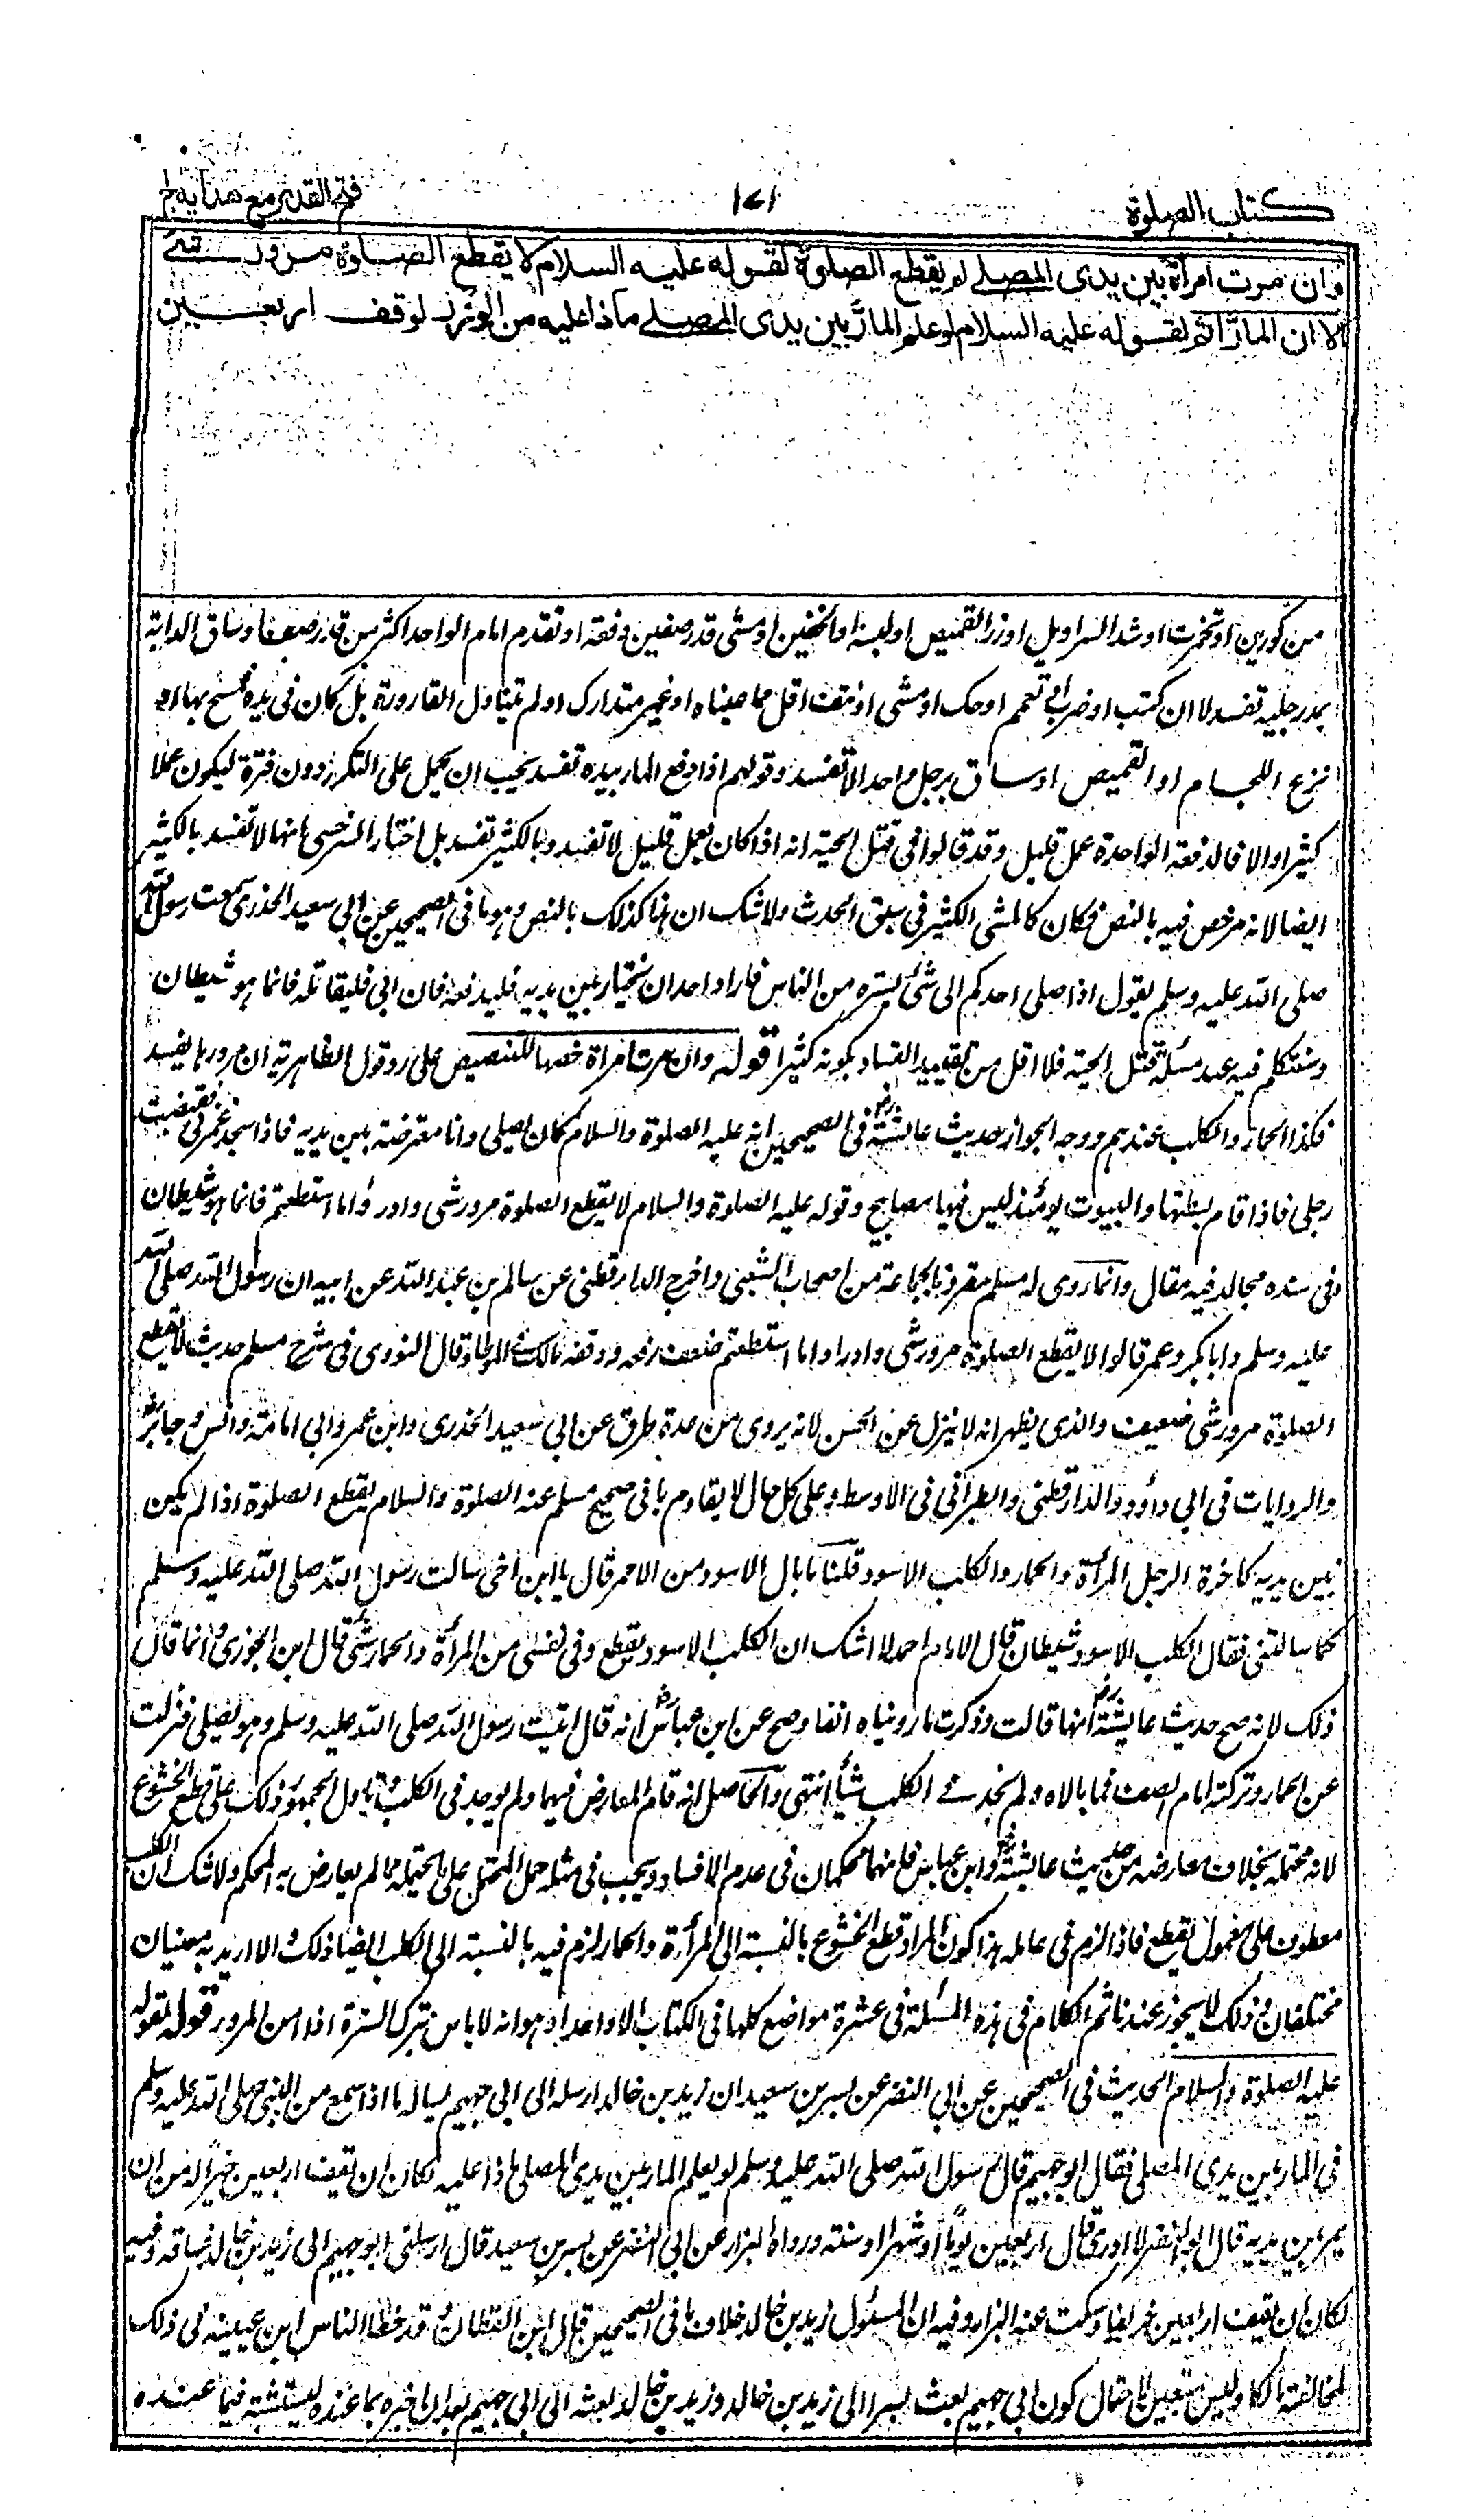 كتاب الصلوة
١٧١
فتح القدير مع هداية ج١
وان مرت امرأة بين يدى المصلے لم يقطع الصلوة لقوله عليه السلام لا يقطع الصلوة مرور شئ
الا ان المارّ اثم لقوله عليه السلام لو علم المارّ بين يدى المصلے ماذا عليه من الوزر لوقف اربعين
من كورين او تخمرت او شد السراويل او زر القميص او لبسه او الخفين او مشى قدر صفين دفعة او تقدم امام الواحد اكثر من قدر صفها وساق الدابة
بمد رجليه تفسد لا ان كتب او ضرب او تعمم او حك او مشى او نتف اقل مما عيناه او غير متدارك او لم يتناول القارورة بل كان فى يده فمسح بها او
نزع اللجام او القميص او ساق برجل واحد لا تفسد وقولهم اذا دفع المار بيده تفسد يجب ان يحمل على التكرر دون فترة ليكون عملا
كثيرا والا فالدفعة الواحدة عمل قليل وقد قالوا فى قتل الحية انه اذا كان بعمل قليل لا تفسد وبالكثير تفسد بل اختار السرخسى انها لا تفسد بالكثير
ايضا لانه مرخص فيه بالنص فكان كالمشى الكثير فى سبق الحدث ولا شك ان هذا كذلك بالنص وهو ما فى الصحيحين عن ابى سعيد الخدرى سمعت رسول الله
صلى الله عليه وسلم يقول اذا صلى احدكم الى شئ يستره من الناس فاراد احد ان يجتاز بين يديه فليدفعه فان ابى فليقاتله فانما هو شيطان
وسنتكلم فيه عند مسئلة قتل الحية فلا اقل من تقييد الفساد بكونه كثيرا قوله وان مرت امرأة خصها للتنصيص على رد قول الظاهرية ان مرورها يفسد
فكذا الحمار والكلب عندهم ووجه الجواز حديث عايشة رض فى الصحيحين انه عليه الصلوة والسلام كان يصلى وانا معترضة بين يديه فاذا سجد غمزنى فقبضت
رجلى فاذا قام بسطتها والبيوت يومئذ ليس فيها مصابيح وقوله عليه الصلوة والسلام لا يقطع الصلوة مرور شئ وادرؤا ما استطعتم فانما هو شيطان
وفى سنده مجالد فيه مقال وانما روى له مسلم مقرونا بجماعة من اصحاب الشعبى واخرج الدارقطنى عن سالم بن عبد الله عن ابيه ان رسول الله صلى الله
عليه وسلم وابا بكر وعمر قالوا لا يقطع الصلوة مرور شئ وادرأوا ما استطعتم ضعف رفعه ووقفه مالك فى الموطا وقال النووى فى شرح مسلم حديث لا يقطع
الصلوة مرور شئ ضعيف والذى يظهر انه لا ينزل عن الحسن لانه يروى من عدة طرق عن ابى سعيد الخدرى وابن عمر وابى امامة وانس وجابر رض
والروايات فى ابى داؤد والدارقطنى والطبرانى فى الاوسط وعلى كل حال لا يقاوم ما فى صحيح مسلم عنه الصلوة والسلام يقطع الصلوة اذا لم يكن
بين يديه كاخرة الرحل المرأة والحمار والكلب الاسود قلنا ما بال الاسود من الاحمر قال يا ابن اخى سالت رسول الله صلى الله عليه وسلم
كما سالتنى فقال الكلب الاسود شيطان قال الامام احمد لا اشك ان الكلب الاسود يقطع وفى نفسى من المرأة والحمار شئ قال ابن الجوزى وانما قال
ذلك لانه صح حديث عايشة رض انها قالت وذكرت ما رويناه انفا وصح عن ابن عباس رض انه قال اتيت رسول الله صلى الله عليه وسلم وهو يصلى فنزلت
عن الحمار وتركته امام الصف فما بالاه ولم نجد فے الكلب شيأ انتهى والحاصل انه قام المعارض فيهما ولم يوجد فى الكلب وتاول الجمهور ذلك على قطع الخشوع
لانه محتمله بخلاف معارضه من حديث عايشة وابن عباس فانهما محكمان فى عدم الافساد ويجب فى مثله حمل المحتمل على المحتمله مما لم يعارض به المحكم ولا شك ان الكلب
معطوف على مفعول يقطع فاذا لزم فى عامله هذا كون المراد قطع الخشوع بالنسبة الى المرأة والحمار لزم فيه بالنسبة الى الكلب ايضا ذلك والا اريد به معنيان
مختلفان وذلك لا يجوز عندنا ثم الكلام فى هذه المسئلة فى عشرة مواضع كلها فى الكتاب الا واحدا وهو انه لا باس بترك السترة اذا امن المرور قوله لقوله
عليه الصلوة والسلام الحديث فى الصحيحين عن ابى النضر عن بسر بن سعيد ان زيد بن خالد ارسله الى ابى جهيم يساله ماذا سمع من النبى صلى الله عليه وسلم
فى المار بين يدى المصلى فقال ابو جهيم قال رسول الله صلى الله عليه وسلم لو يعلم المار بين يدى المصلى ماذا عليه لكان ان يقف اربعين خيرا له من ان
يمر بين يديه قال ابو النضر لا ادرى قال اربعين يوما او شهرا او سنة ورواه البزار عن ابى النضر عن بسر بن سعيد قال ارسلنى ابو جهيم الى زيد بن خالد فساقه وفيه
لكان ان يقف اربعين خريفا وسكت عنه البزار وفيه ان المسئول زيد بن خالد خلاف ما فى الصحيحين قال ابن القطان وقد خطا الناس ابن عيينة فى ذلك
لمخالفته مالكا وليس بمتعين لاحتمال كون ابى جهيم بعث بسرا الى زيد بن خالد وزيد بن خالد بعثه الى ابى جهيم بعد ان اخبره بما عنده ليستثبته فيما عنده